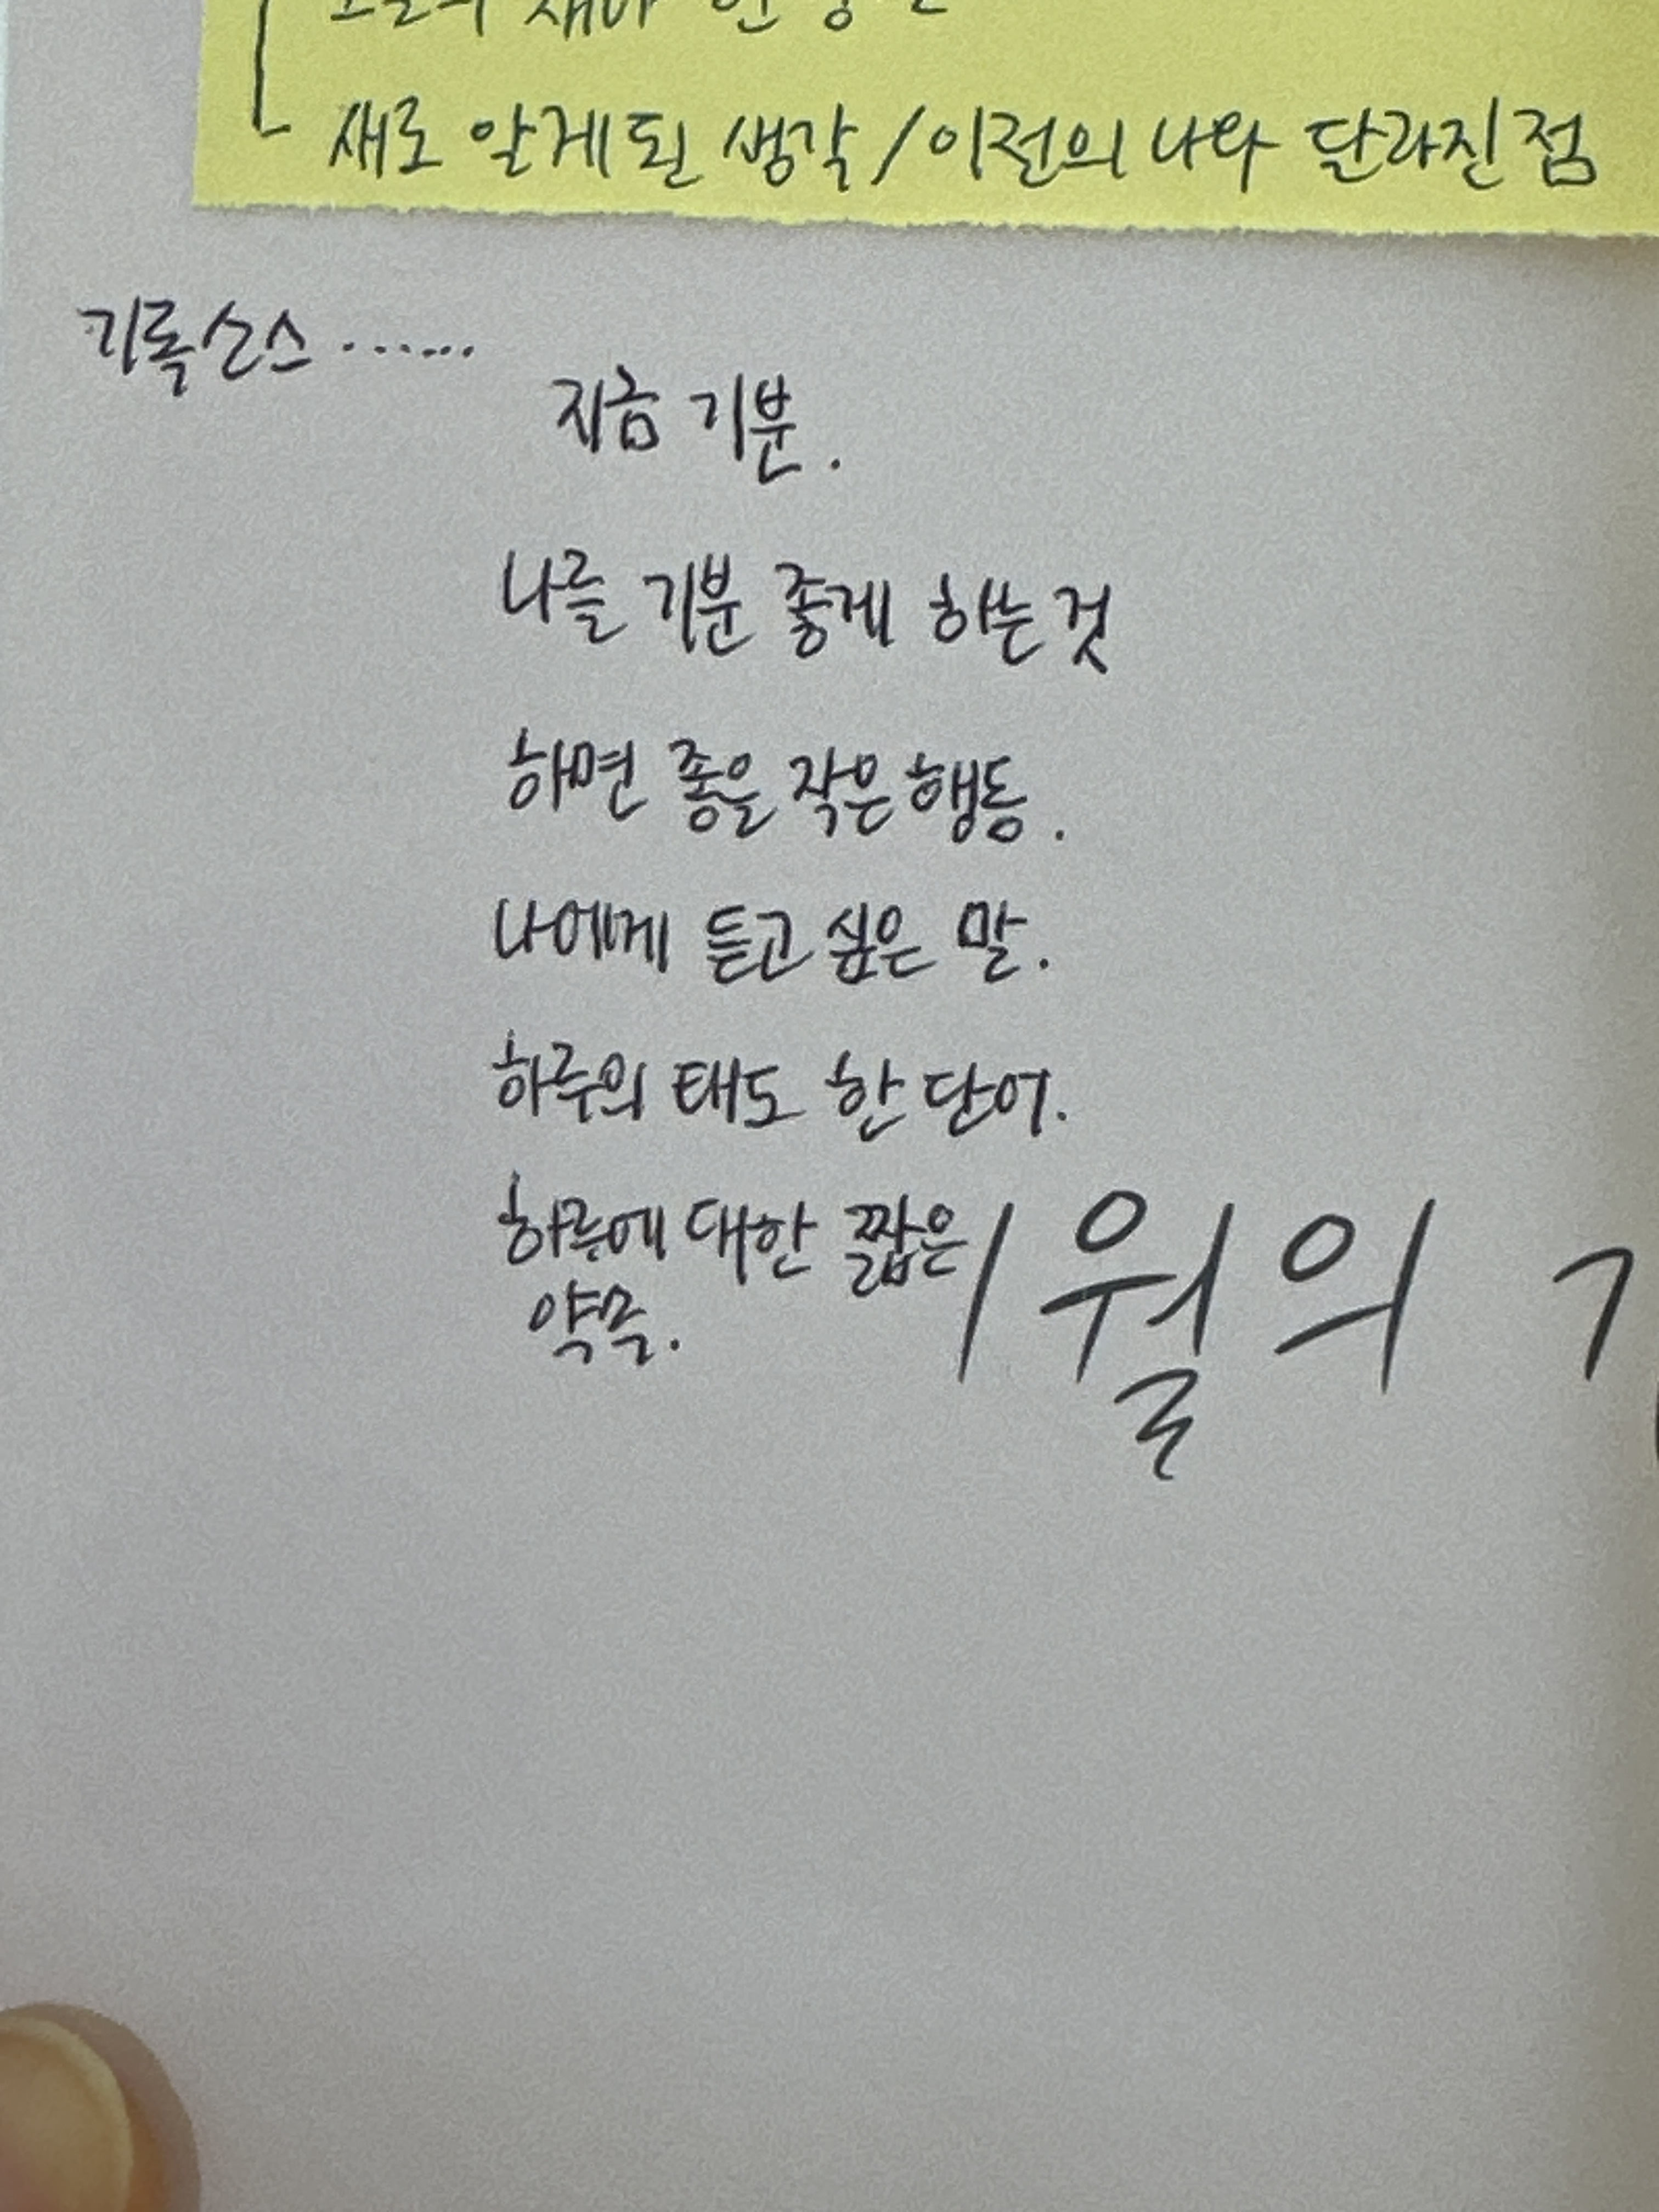 새로 알게된 생각 / 이전의 나와 달라진 점
기록소스 ......
지금 기분.
나를 기분 좋게 하는 것
하면 좋을 작은 행동.
나에게 듣고 싶은 말.
하루의 태도 한 단어.
하루에 대한 짧은
약속.
1월의